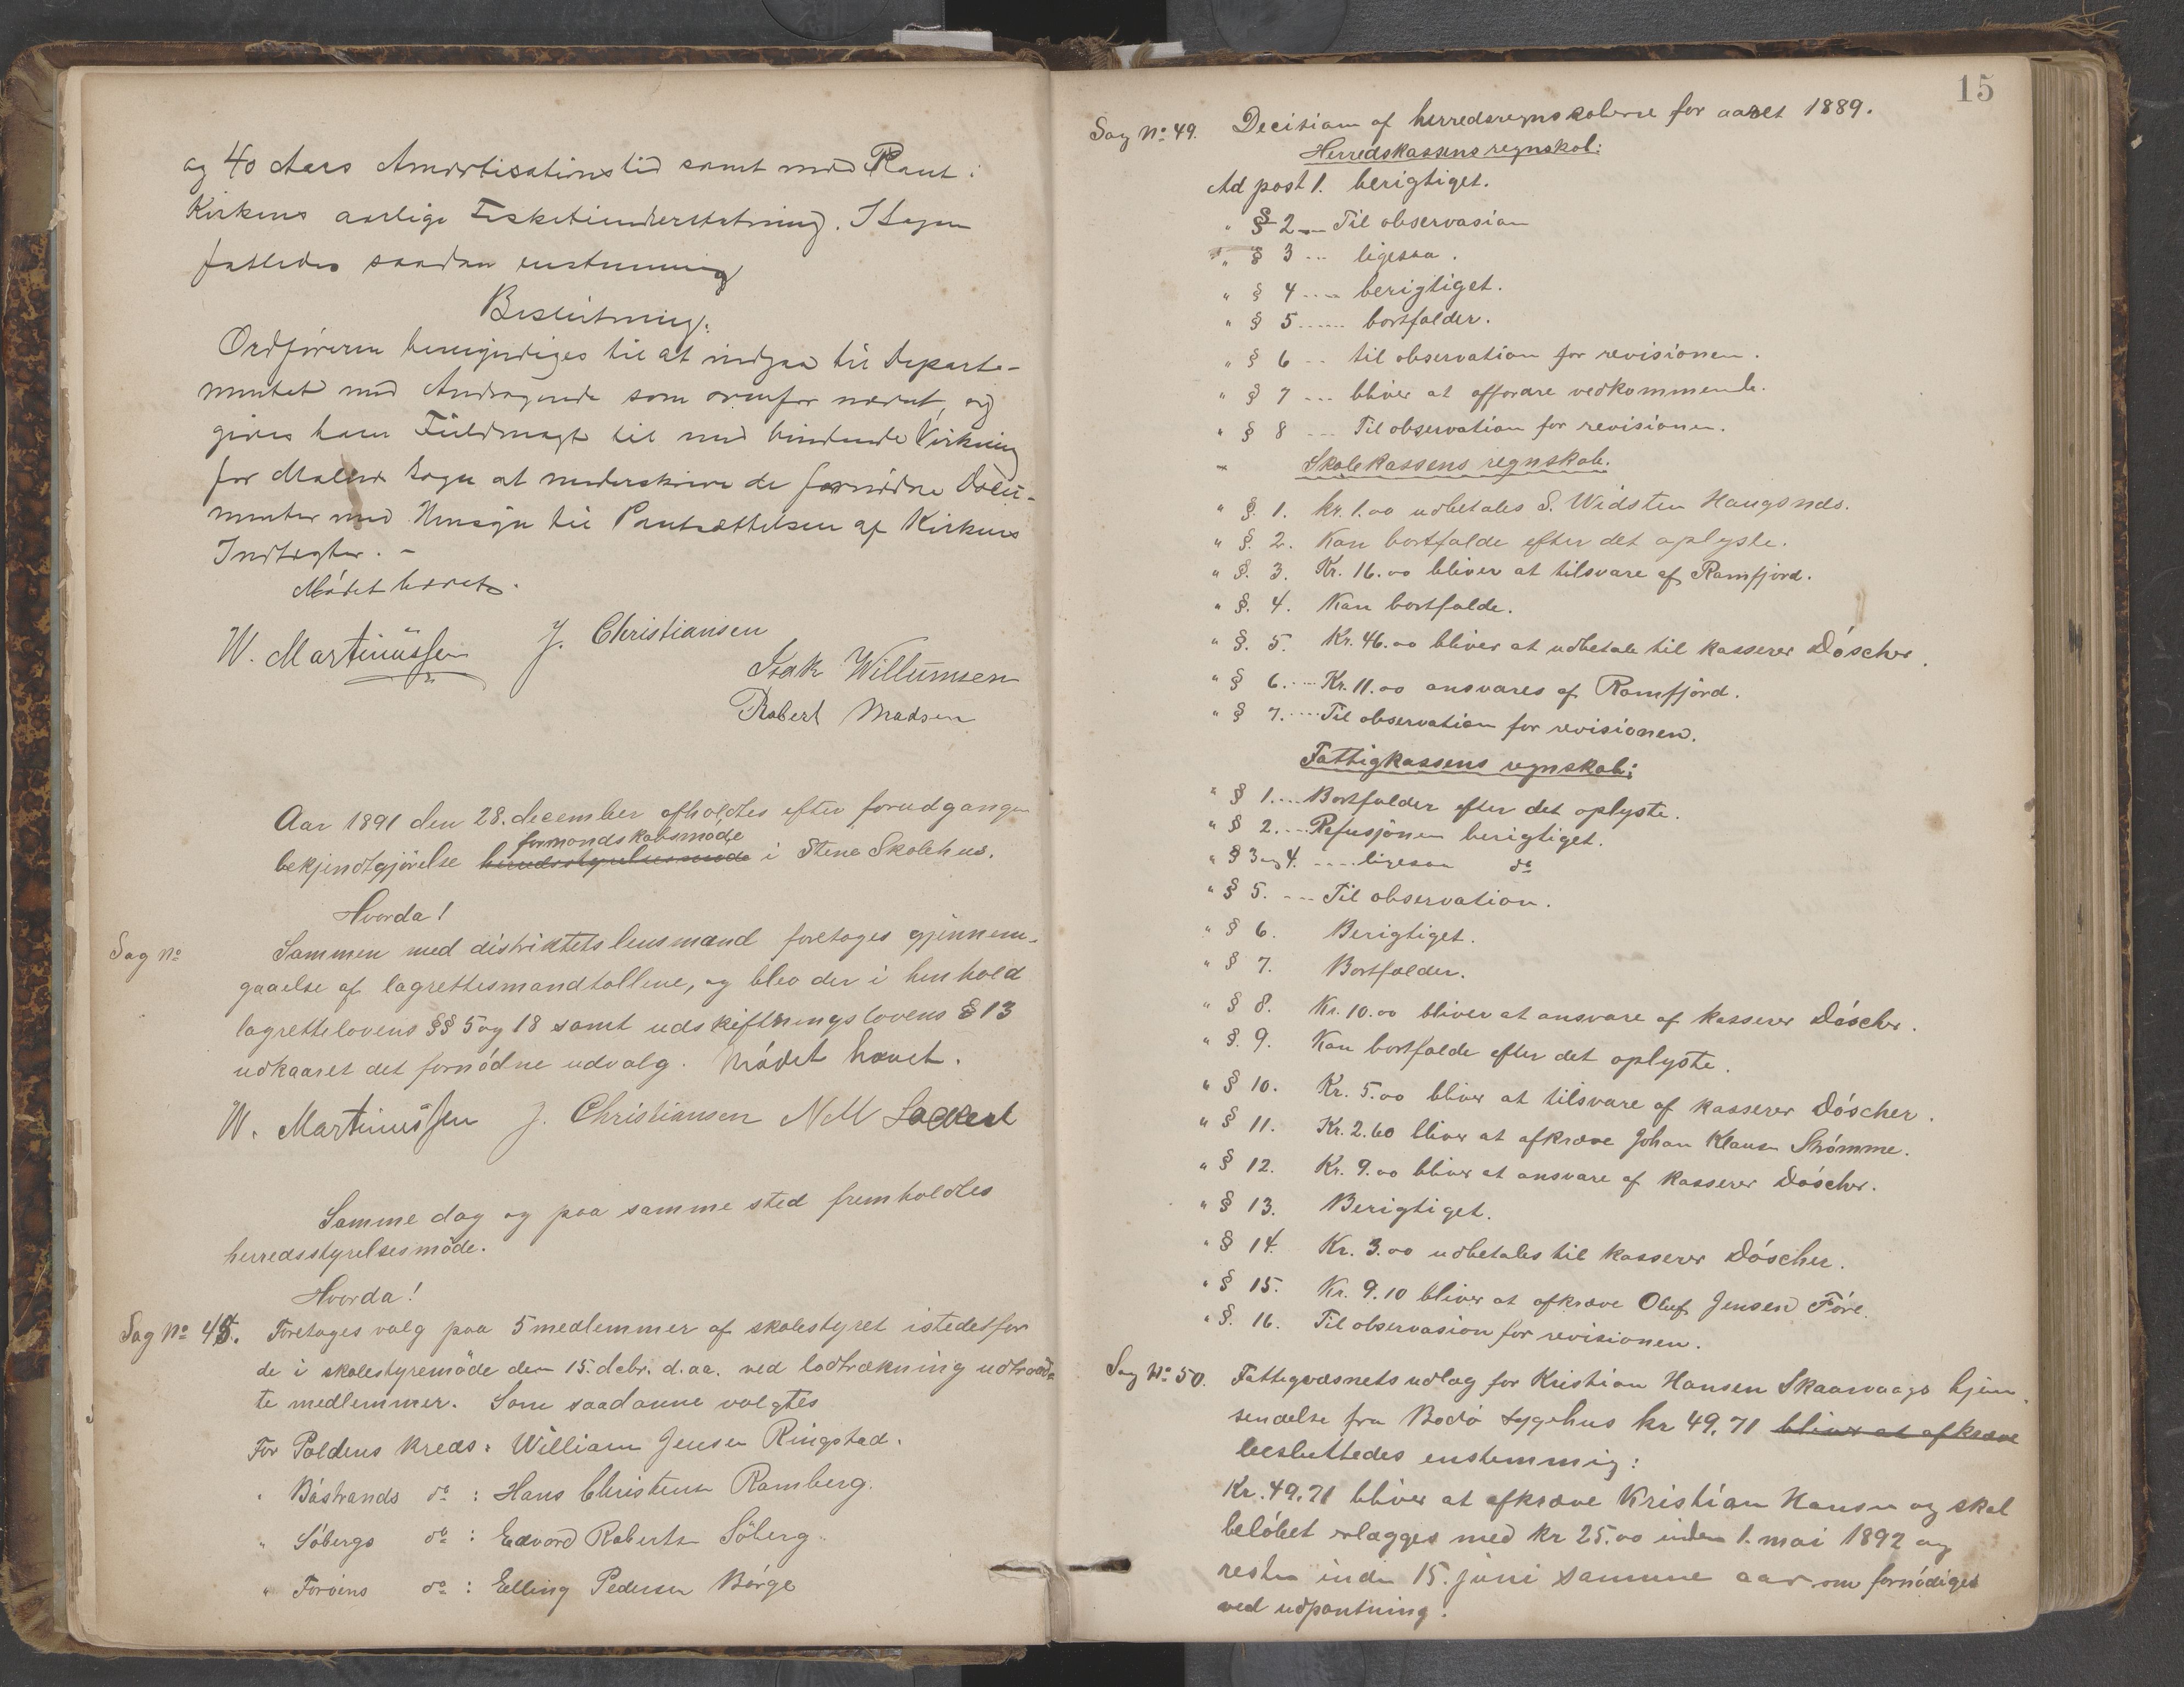 og 40 Aars Amortisationstid samt med Pant i
Kirkens aarlige Fisketiendeerstatning. I Sagen
fattedes saadan enstemmig
Beslutning:
Ordføreren bemyndiges til at indgaa til Departe-
mentet med Andragende som ovenfor nævnt, og
gives ham Fuldmagt til med bindende Virkning
for Malnes Sogn at underskrive de fornødne Docu-
menter med Hensyn til Pantsættelsen af Kirkens
Indtægter. -
Mødet hævet.
W. Martinussen J. Christiansen
Isak Willumsen
Robert Madsen
Aar 1891 den 28. december afholdtes efter forudgangen
formandskabsmøde
bekjendtgjørelse herredsstyrelsesmøde i Stene Skolehus.
Hvorda!
Sag No Sammen med distriktets lensmand foretoges gjennem-
gaaelse af lagrettesmandtallene, og blev der i henhold
lagrettelovens §§ 5 og 18 samt udskiftningslovens § 13
udkaaret det fornødne udvalg. Mødet hævet.
W. Martinussen J. Christiansen N M Lockert
Samme dag og paa samme sted fremholdtes
herredsstyrelsesmøde.
Hvorda!
Sag No 48. Foretoges valg paa 5 medlemmer af skolestyret istedetfor
de i skolestyremøde den 15. debr. d.aa. ved lodtrækning udtraad-
te medlemmer. Som saadanne valgtes
For Poldens kreds: William Jensen Ringstad.
" Bástrands do : Hans Christensen Ramberg.
" Søbergs do : Edvard Robertsen Søberg
" Forøens do : Elling Pedersen Børge
15
Sag No 49. Decision af herredsregnskaberne for aaret 1889.
Herredskassens regnskab:
Ad post 1. berigtiget.
" § 2 — Til observasion
" § 3 ... ligesaa.
" § 4 .... berigtiget.
" § 5 ...... bortfalder.
" § 6 ... til observation for revisionen.
" § 7 ... bliver at affordre vedkommende.
" § 8 ... Til observation for revisionen.
Skolekassens regnskab.
" §. 1. kr. 1.00 udbetales S. Widsten Haugsnds.
" §. 2. Kan bortfalde efter det oplyste.
" §. 3. Kr. 16.00 bliver at tilsvare af Ramfjord.
" §. 4. Kan bortfalde.
" §. 5. Kr. 46.00 bliver at udbetale til kasserer Døscher.
" § 6. ... Kr. 11.00 ansvares af Ramfjord.
" § 7. .... Til observation for revisionen.
Fattigkassens regnskab:
" § 1. ... Bortfalder efter det oplyste.
" § 2. ... Refusjonen berigtiget.
" § 3 og 4. .... ligesaa do
" § 5. ... Til observation.
" § 6. Berigtiget.
" § 7. Bortfalder.
" § 8. Kr. 10.00 bliver at ansvare af kasserer Døscher.
" §. 9. Kan bortfalde efter det oplyste.
" § 10. Kr. 5.00 bliver at tilsvare af kasserer Døscher.
" § 11. Kr. 2.60 bliver at afkræve Johan Klausen Strømme.
" § 12. Kr. 9.00 bliver at ansvare af kasserer Døscher.
" § 13. Berigtiget.
" § 14. Kr. 3.00 udbetales til kasserer Døscher.
" § 15. Kr. 9.10 bliver at afkræve Oluf Jensen Føre.
" §. 16. Til observasion for revisionen.
Sag No 50. Fattigvæsnets udlæg for Kristian Hansen Skaarvaags hjem
sendelse fra Bodø sygehus kr 49,71 bliver at afkræve
besluttedes enstemmig:
Kr. 49,71 bliver at afkræve Kristian Hansen og skal
beløbet erlægges med kr 25.00 inden 1. mai 1892 og
resten inden 15. juni samme aar om fornødiges
ved udpantning.